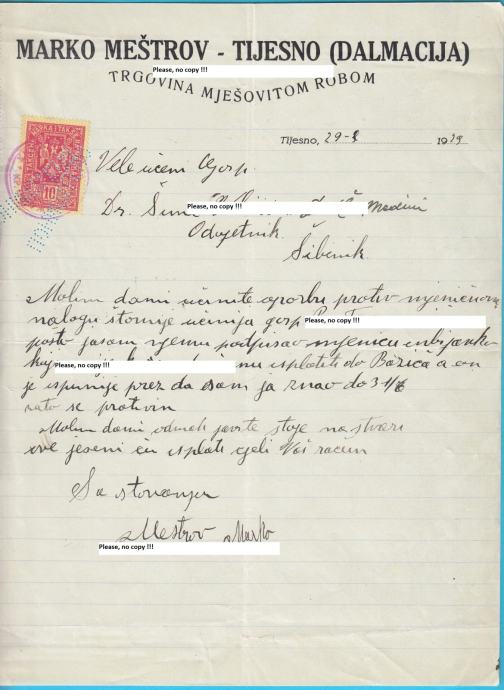 MARKO MEŠTROV - TIJESNO (DALMACIJA)
Please, no copy !!!
TRGOVINA MJEŠOVITOM ROBOM
Tijesno, 29- 1939
Vele učeni Gosp.
Dr. Please, no copy !!!
Odvjetnik
Šibenik
Molim da mi učinite oporbu protiv mjeničnom
nalogu što mije učinija gosp Please, no copy !!!
pošto ja sam njemu podpisao mjenicu
Please, no copy !!! isplatiti do Božića a on
je ispunije prez da sam ja znao do
zato se protivin
Molim da mi odmah javite stoje na stvari
ove jeseni ću isplati cjeli Vaš račun
Sa štovanjem
Meštrov Marko
Please, no copy !!!
10